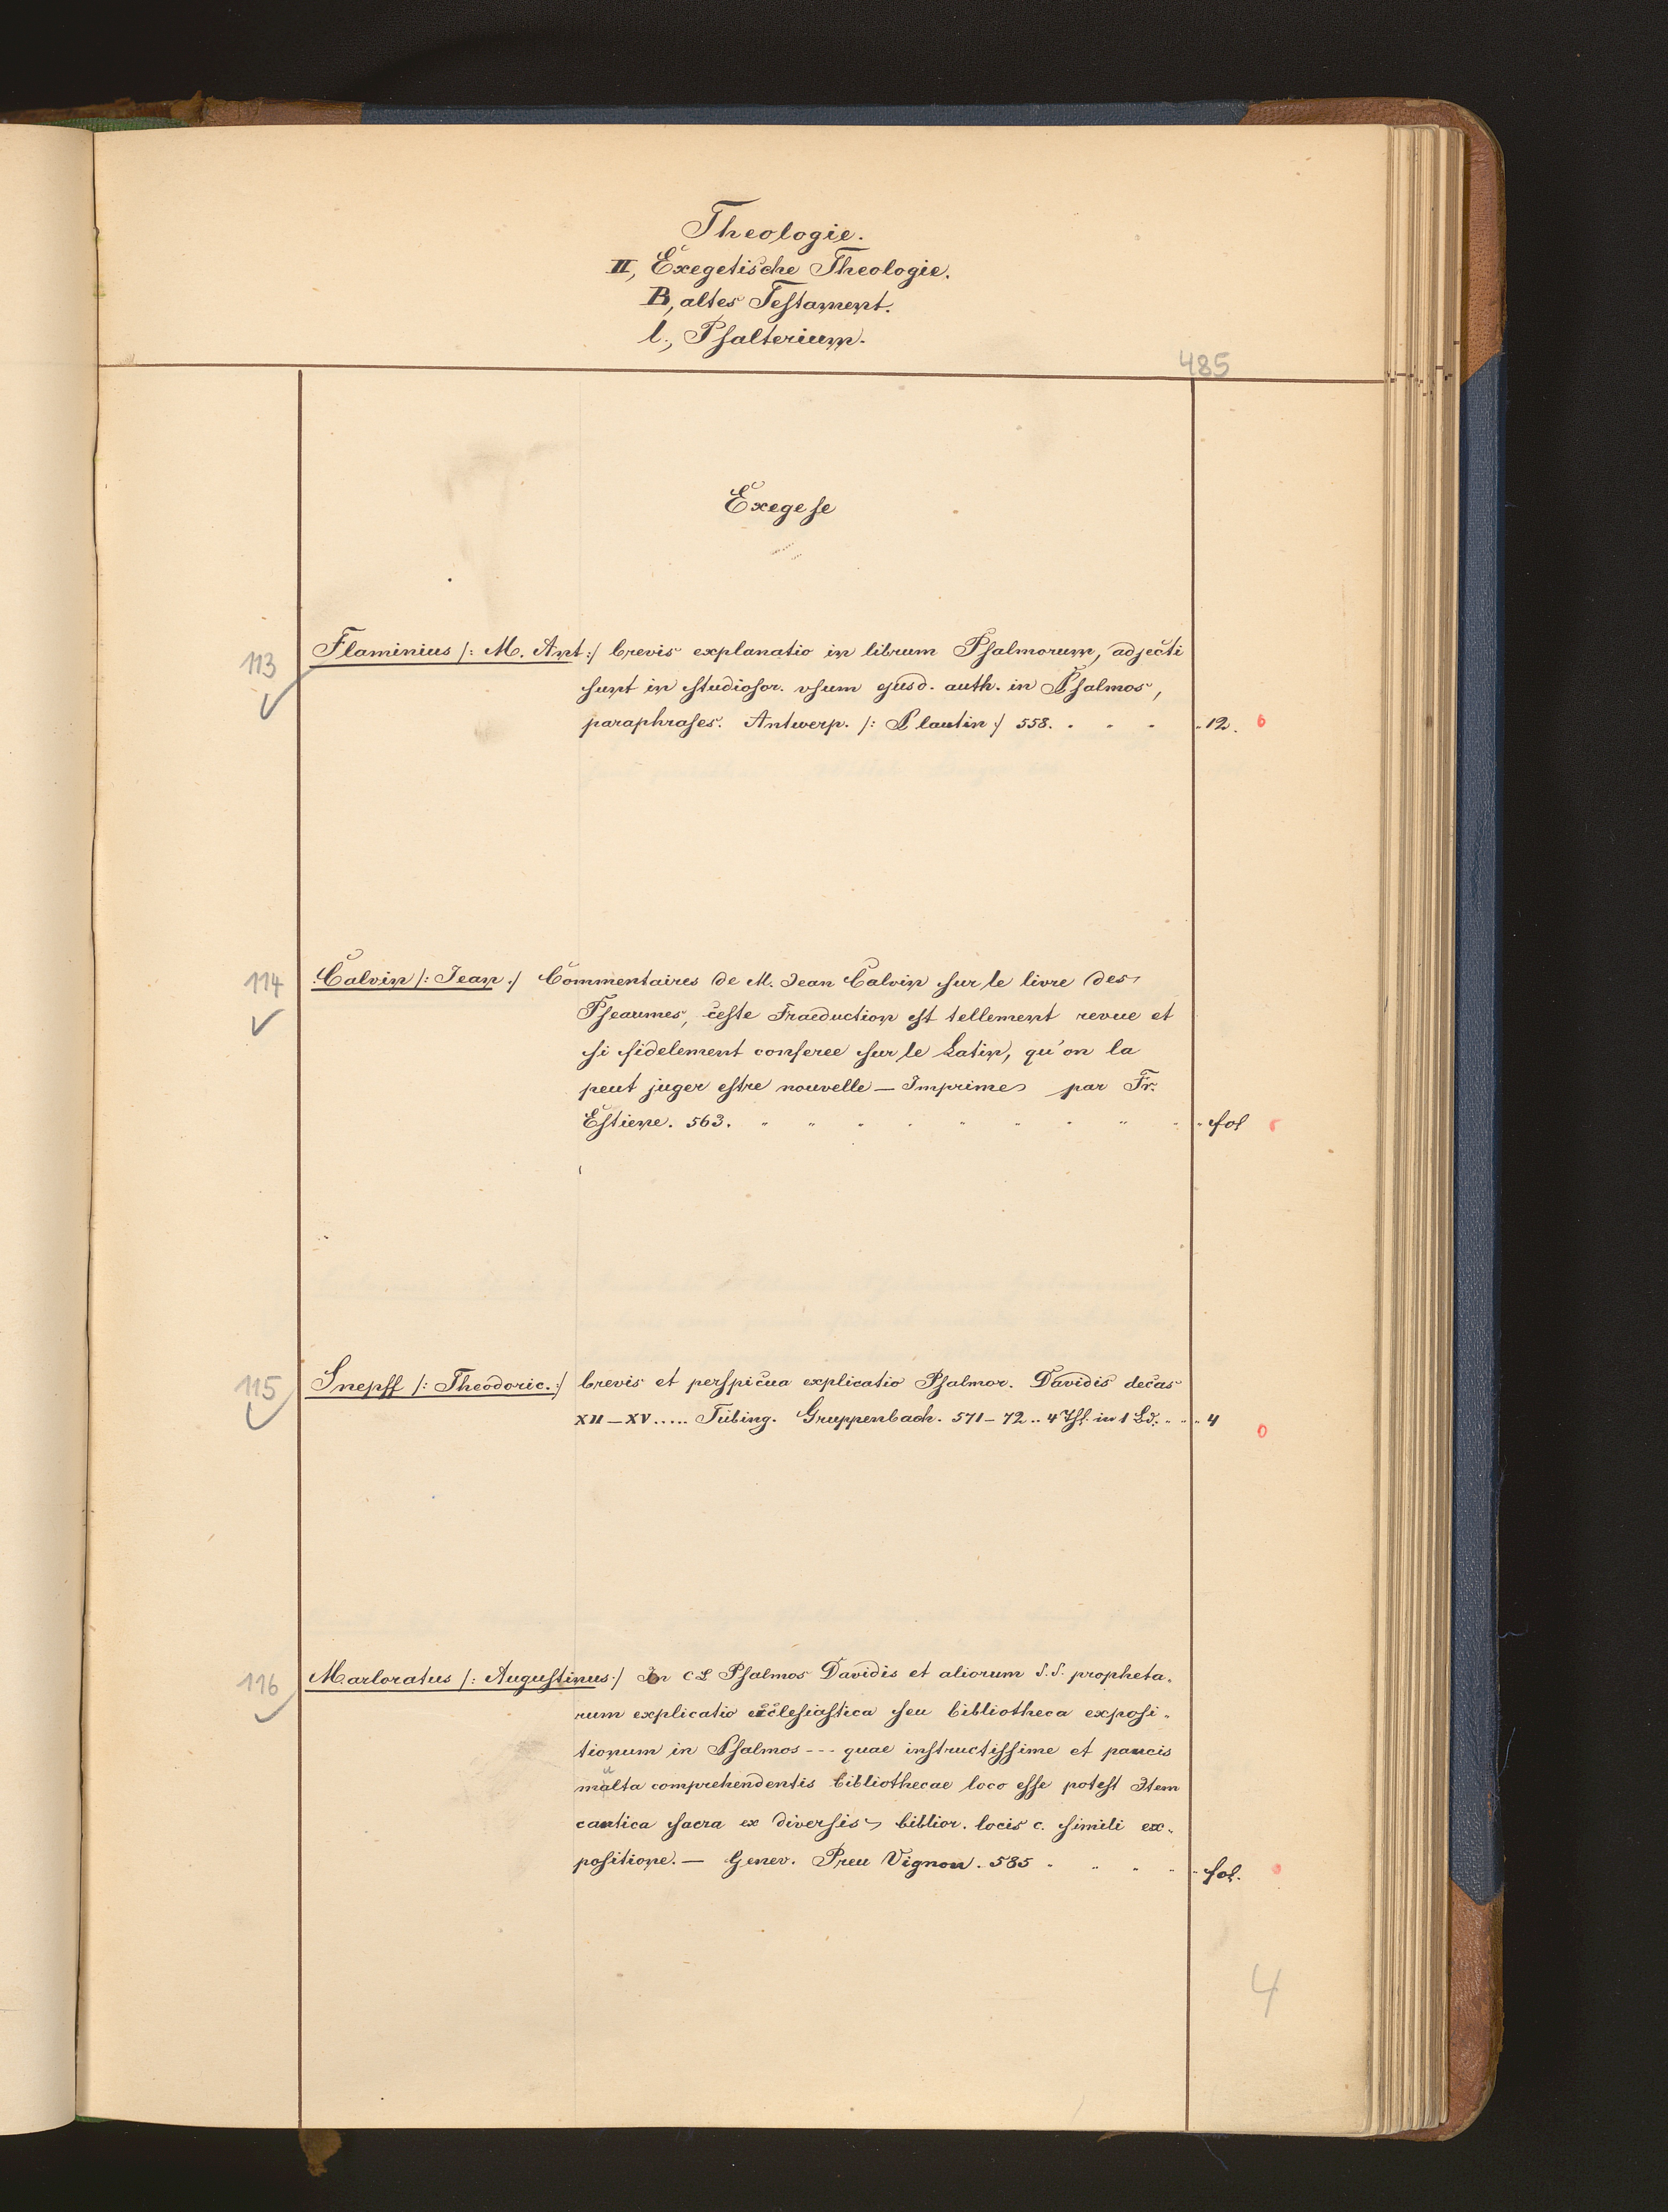 Theologie.
II, Exegetische Theologie.
B, altes Testament.
l., Psalterium.
485
Exegese
113 Flaminius /: M. Ant :/ brevis explanatio in librum Psalmorum, adjecti
sunt in studiosor. usum ejusd. auth. in Psalmos,
paraphrases. Antwerp. /: Plautin :/ 558. . . . 12. 0
114 Calvin /: Jean :/ Commentaires de M. Jean Calvin sur le livre des
Pseaumes, ceste Traeduction est tellement revue et
si fidelement conferee sur le Latin, qu'on la
peut juger estre nouvelle — Imprimé par Fr.
Estiene. 563. " " " " " " " " " fol
115 Snepff /: Theodoric. :/ brevis et perspicua explicatio Psalmor. Davidis decas
XII – XV ..... Tübing. Gruppenbach. 571 – 72 .. 4 Thl. in 1 Bd. " " " 4 0
116 Marloratus /: Augustinus :/ In CL Psalmos Davidis et aliorum S.S. propheta-
rum explicatio ecclesiastica seu bibliotheca exposi-
tionum in Psalmos --- quae instructissime et paucis
multa comprehendentis bibliothecae loco esse potest Item
cantica sacra ex diversis biblior. locis c. simili ex-
positione. — Genev. Preu Vignon. 585 " " " " fol.
4